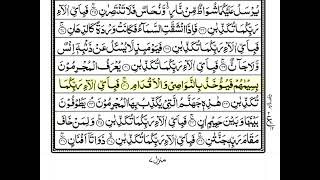 يُرْسَلُ عَلَيْكُمَا شُوَاظٌ مِّنْ نَّارٍ وَّنُحَاسٌ فَلَا تَنْتَصِرٰنِ فَبِاَيِّ اٰلَآءِ
رَبِّكُمَا تُكَذِّبٰنِ فَاِذَا انْشَقَّتِ السَّمَآءُ فَكَانَتْ وَرْدَةً كَالدِّهَانِ فَبِاَيِّ
اٰلَآءِ رَبِّكُمَا تُكَذِّبٰنِ فَيَوْمَئِذٍ لَّا يُسْـَٔلُ عَنْ ذَنْۢبِهٖٓ اِنْسٌ
وَّلَا جَآنٌّ فَبِاَيِّ اٰلَآءِ رَبِّكُمَا تُكَذِّبٰنِ يُعْرَفُ الْمُجْرِمُوْنَ
بِسِيْمٰهُمْ فَيُؤْخَذُ بِالنَّوَاصِيْ وَالْاَقْدَامِ فَبِاَيِّ اٰلَآءِ رَبِّكُمَا
تُكَذِّبٰنِ هٰذِهٖ جَهَنَّمُ الَّتِيْ يُكَذِّبُ بِهَا الْمُجْرِمُوْنَ يَطُوْفُوْنَ
بَيْنَهَا وَبَيْنَ حَمِيْمٍ اٰنٍ فَبِاَيِّ اٰلَآءِ رَبِّكُمَا تُكَذِّبٰنِ وَلِمَنْ خَافَ
مَقَامَ رَبِّهٖ جَنَّتٰنِ فَبِاَيِّ اٰلَآءِ رَبِّكُمَا تُكَذِّبٰنِ ذَوَاتَآ اَفْنَانٍ
منزل ٧